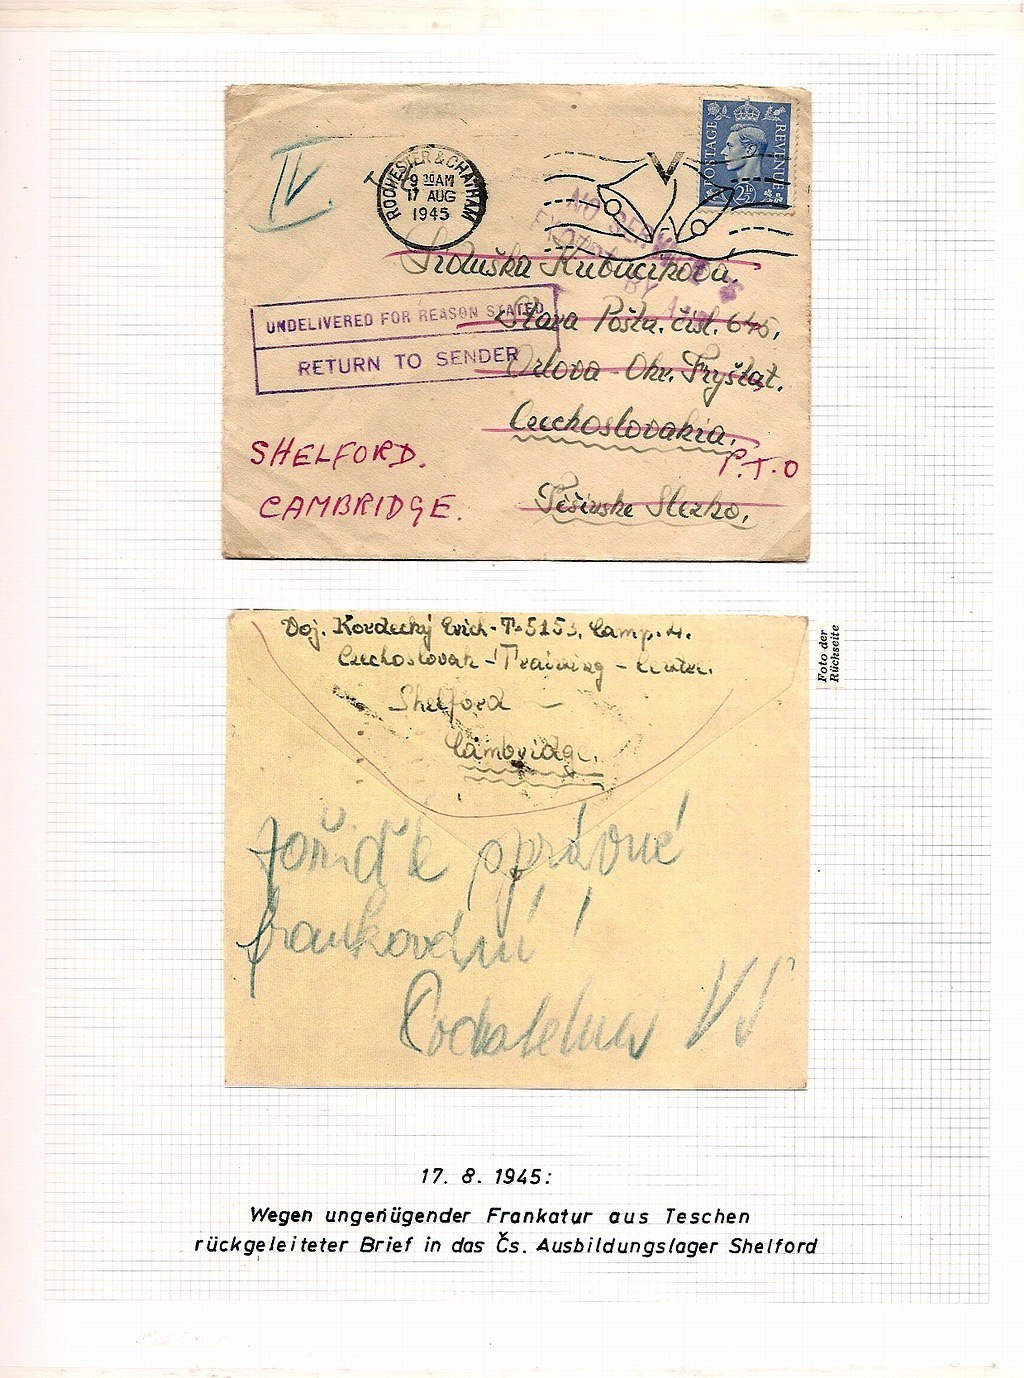 IV.
ROCHESTER & CHATHAM
9 30 AM
17 AUG
1945
POSTAGE REVENUE
2½D
T
NO SERVICE
BY AIR
Kubuczkova.
Stara Pošta. čisl. 645,
Orlova - Okr. Fryštat.
Czechoslovakia.
Těšinske Slezko.
UNDELIVERED FOR REASON STATED
RETURN TO SENDER
SHELFORD.
CAMBRIDGE.
P.T.O
Voj. Kordecký Erich - T-5153. Camp. 4.
Czechoslovak - Training - Center.
Shelford -
Cambridge.
Foto der
Rückseite
správné
frankování!
17. 8. 1945:
Wegen ungenügender Frankatur aus Teschen
rückgeleiteter Brief in das Čs. Ausbildungslager Shelford